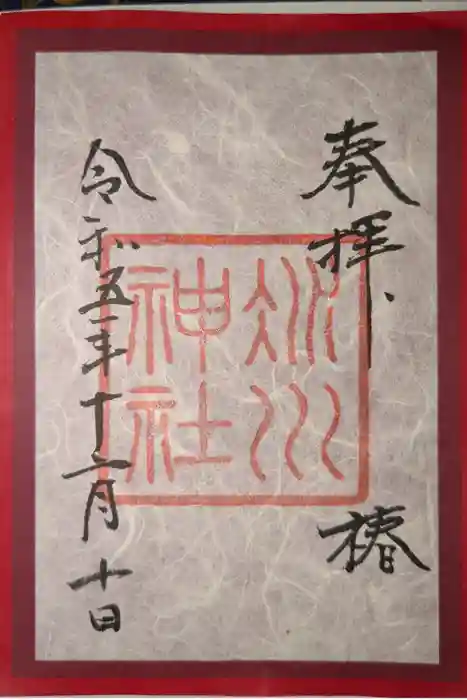 奉拝、
椿
氷川
神社
令和五年十二月十日